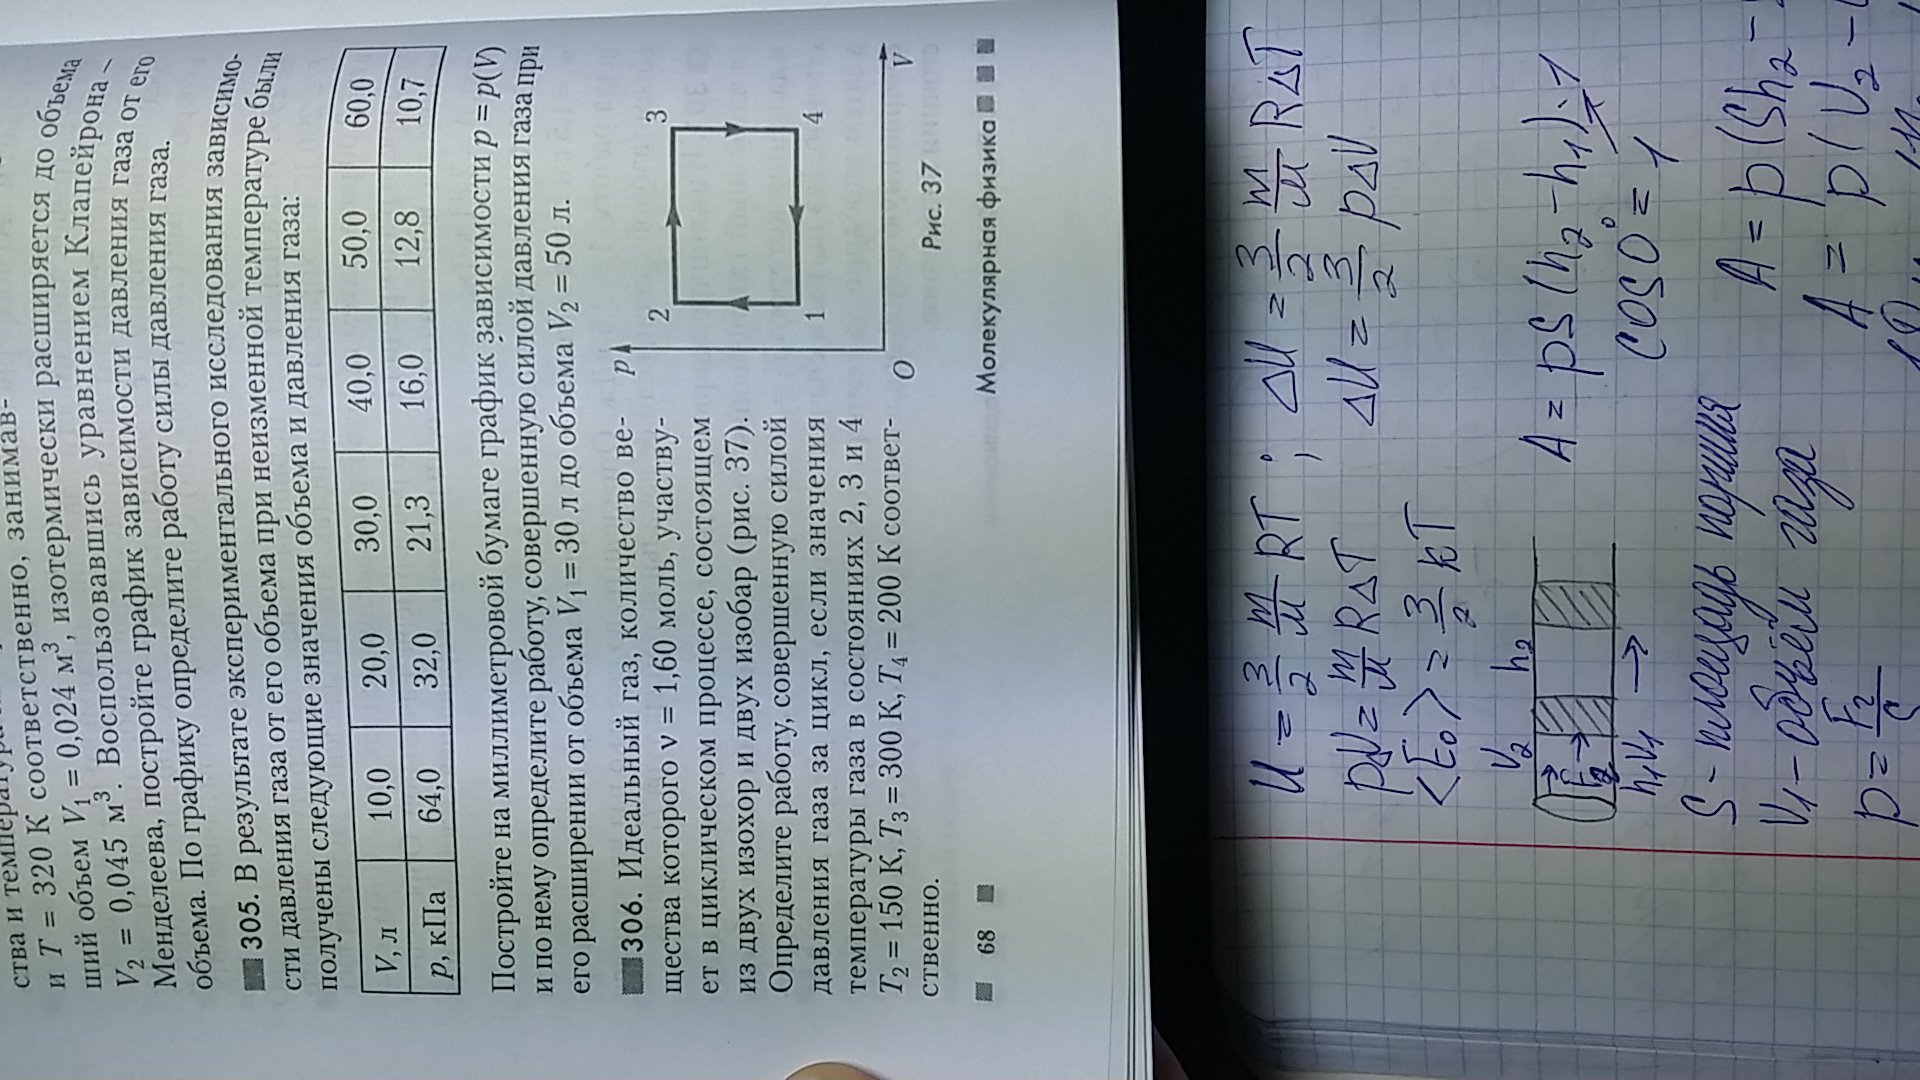 ства и температура
и T = 320 К соответственно, занимав-
ший объем V₁ = 0,024 м³, изотермически расширяется до объема
V₂ = 0,045 м³. Воспользовавшись уравнением Клапейрона –
Менделеева, постройте график зависимости давления газа от его
объема. По графику определите работу силы давления газа.
305. В результате экспериментального исследования зависимо-
сти давления газа от его объема при неизменной температуре были
получены следующие значения объема и давления газа:
V, л 10,0 20,0 30,0 40,0 50,0 60,0
p, кПа 64,0 32,0 21,3 16,0 12,8 10,7
Постройте на миллиметровой бумаге график зависимости p = p(V)
и по нему определите работу, совершенную силой давления газа при
его расширении от объема V₁ = 30 л до объема V₂ = 50 л.
306. Идеальный газ, количество ве-
щества которого ν = 1,60 моль, участву-
ет в циклическом процессе, состоящем
из двух изохор и двух изобар (рис. 37).
Определите работу, совершенную силой
давления газа за цикл, если значения
температуры газа в состояниях 2, 3 и 4
T₂ = 150 К, T₃ = 300 К, T₄ = 200 К соответ-
ственно.
p
2 3
1 4
O V
Рис. 37
68
Молекулярная физика
U = 3/2 m/M RT ; ΔU = 3/2 m/M RΔT
pΔV = m/M RΔT ΔU = 3/2 pΔV
<E₀> = 3/2 kT
V₂ h₂
h₁V₁
A = pS(h₂ - h₁) · 1
cos 0° = 1
S - площадь поршня
A = p(Sh₂ -
V₁ - объём газа
A = p(V₂ -
p = F₂/S